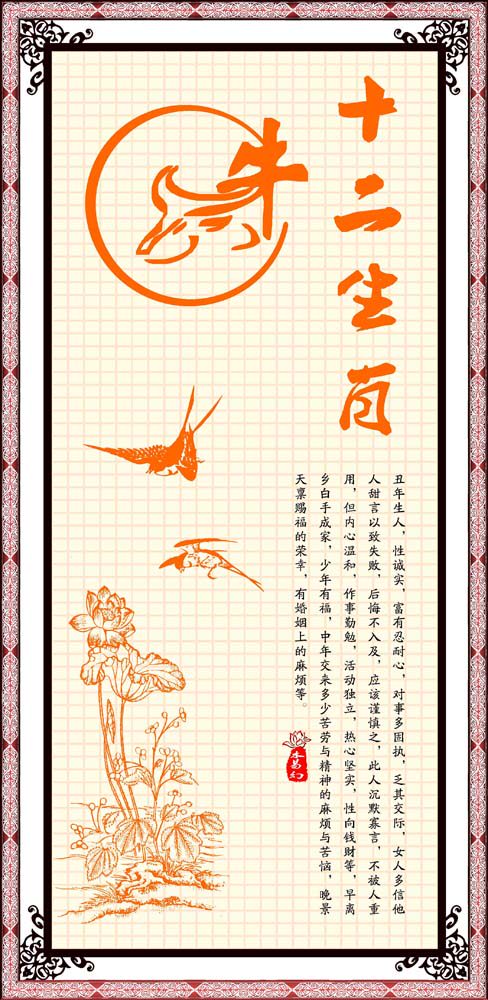 十二生肖
牛
丑年生人，性诚实，富有忍耐心，对事多固执，乏其交际，女人多信他
人甜言以致失败，后悔不入及，应该谨慎之，此人沉默寡言，不被人重
用，但内心温和，作事勤勉，活动独立，热心坚实，性向钱财等，早离
乡白手成家，少年有福，中年交来多少苦劳与精神的麻烦与苦恼，晚景
天禀赐福的荣幸，有婚姻上的麻烦等。